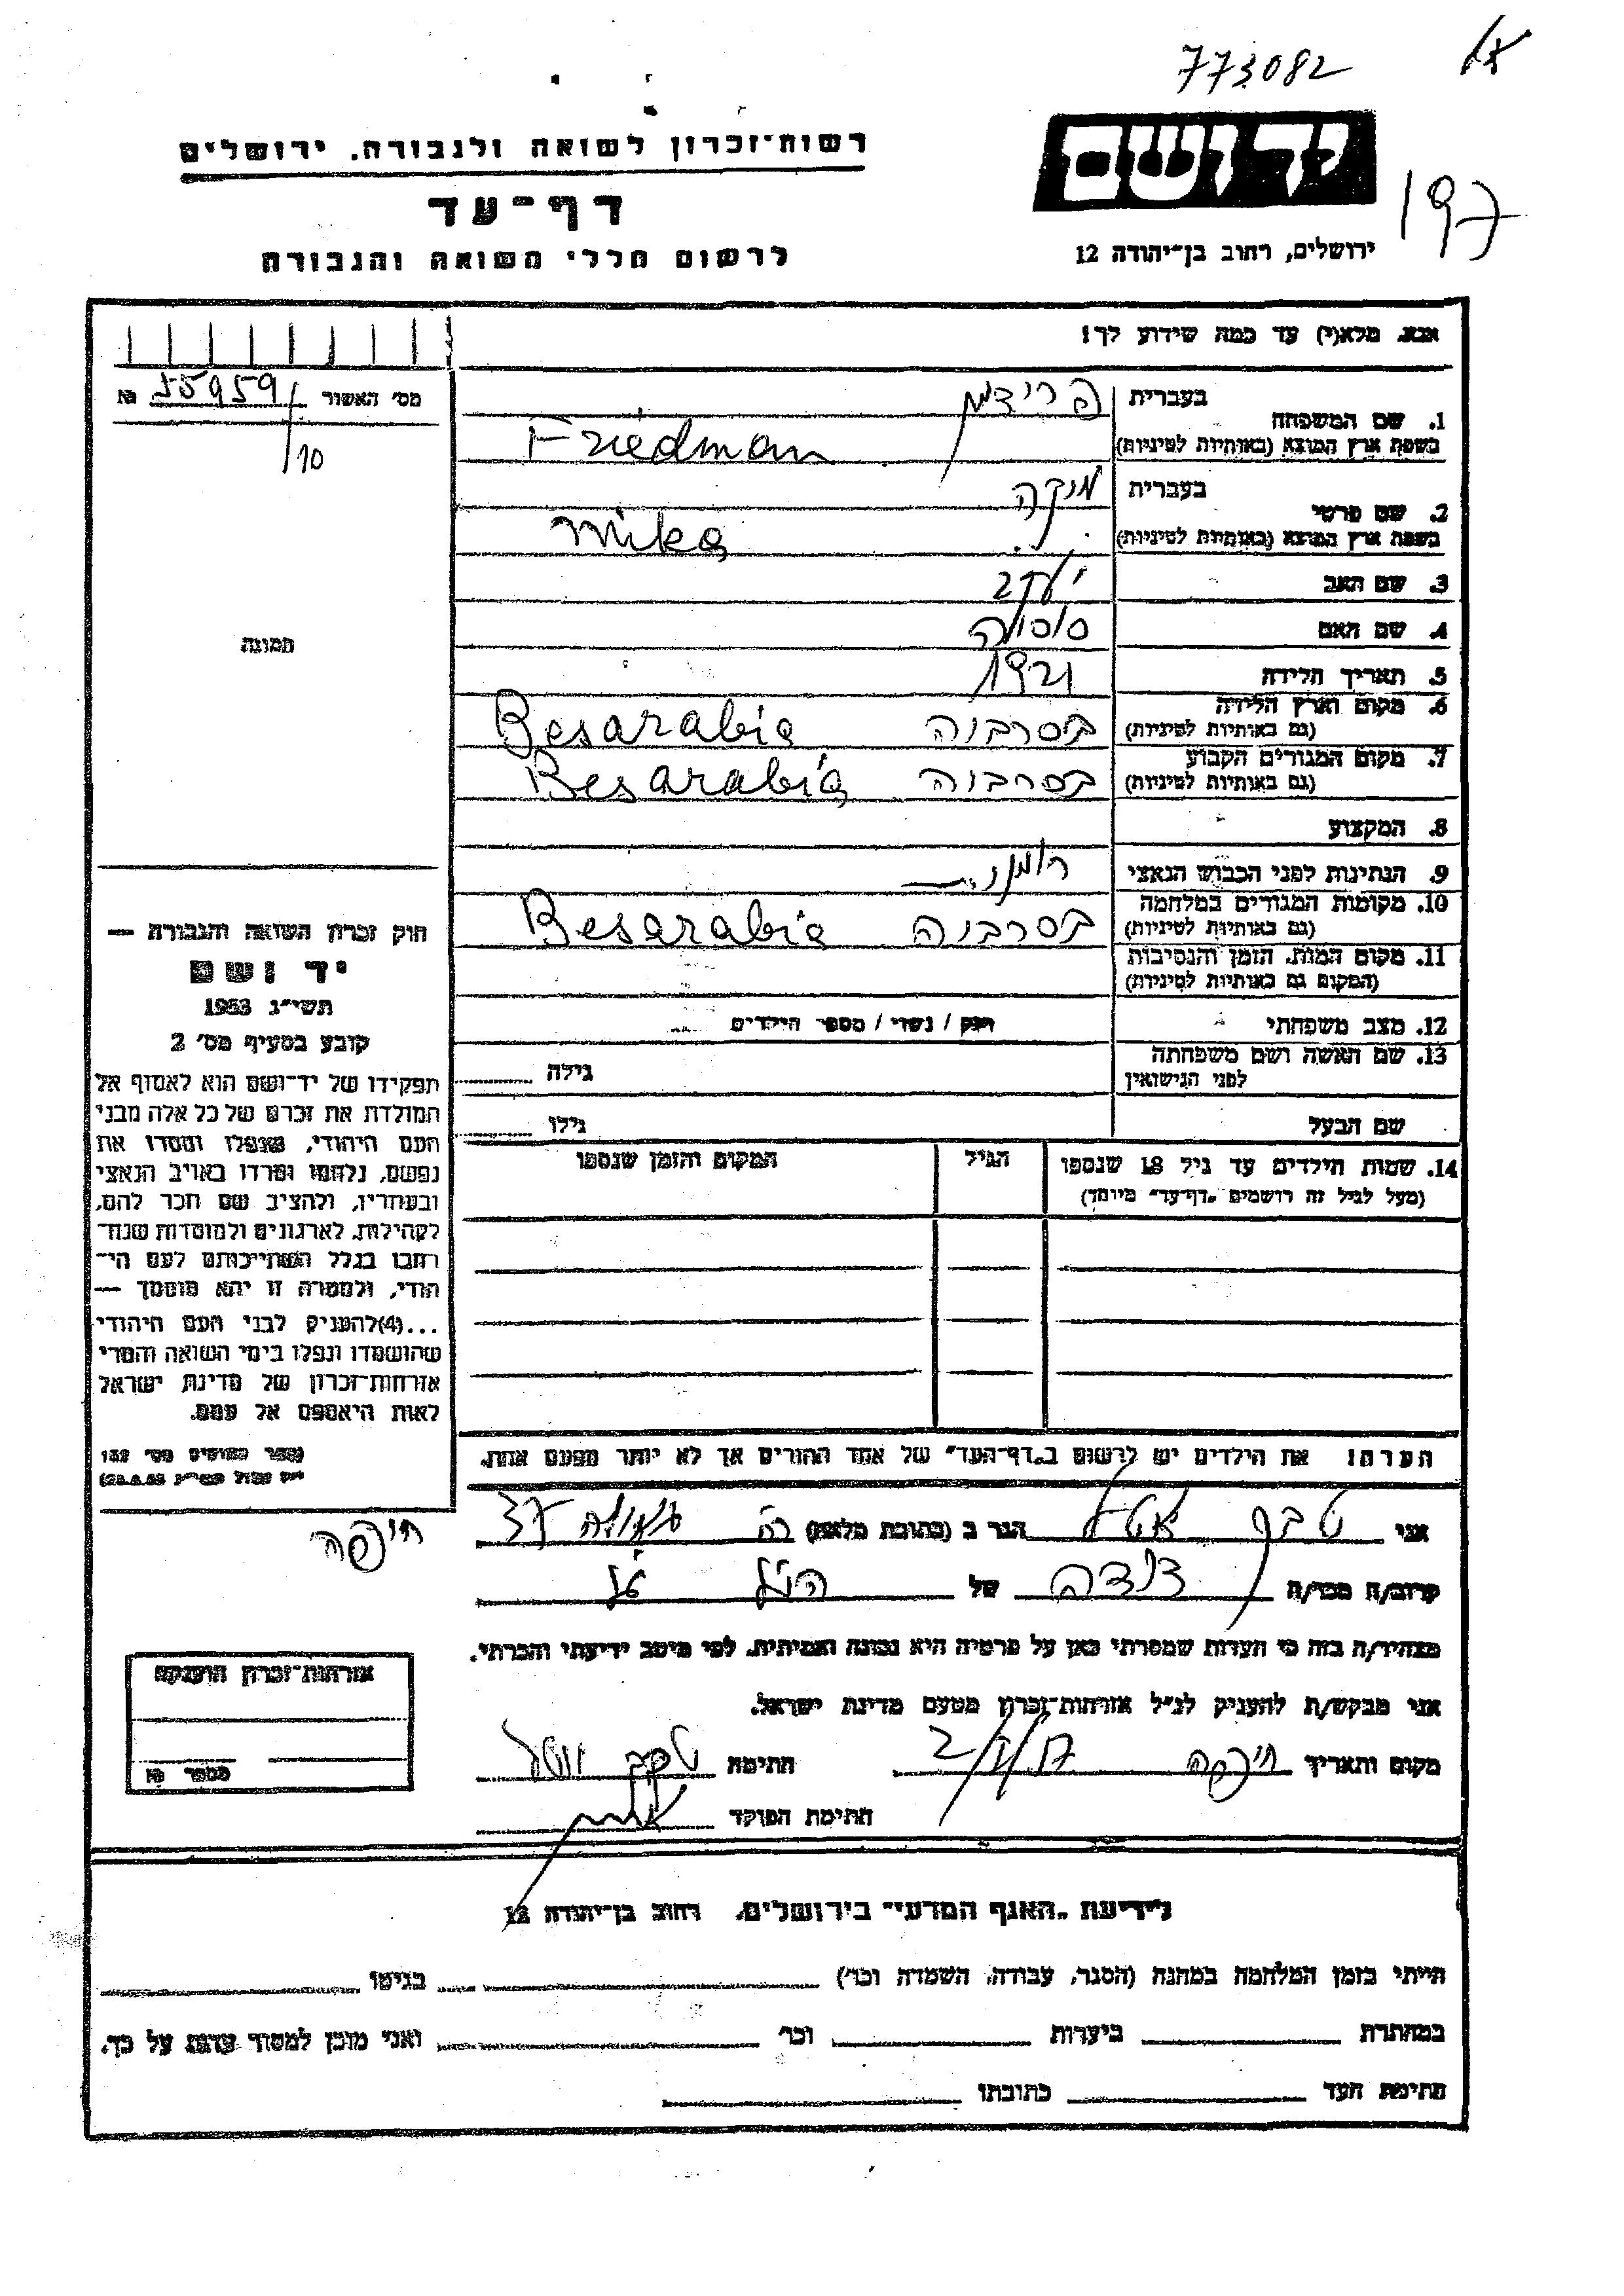 773082
יד ושם
197
רשות־זכרון לשואה ולגבורה, ירושלים
דף־עד
לרשום חללי השואה והגבורה
ירושלים, רחוב בן־יהודה 12
אנא, מלא(י) עד כמה שידוע לך!
מס׳ האשור 55959 №
/10
1. שם המשפחה
בעברית פרידמן
בשפת ארץ המוצא (באותיות לטיניות) Friedman
2. שם פרטי
בעברית מיקה
בשפת ארץ המוצא (באותיות לטיניות) Mika
3. שם האב יעקב
4. שם האם
5. תאריך הלידה 1921
6. מקום וארץ הלידה
(גם באותיות לטיניות) בסרביה Besarabia
7. מקום המגורים הקבוע
(גם באותיות לטיניות) בסרביה Besarabia
8. המקצוע
9. הנתינות לפני הכבוש הנאצי רומני
10. מקומות המגורים במלחמה
(גם באותיות לטיניות) בסרביה Besarabia
11. מקום המות, הזמן והנסיבות
(המקום גם באותיות לטיניות)
12. מצב משפחתי רווק / נשוי / מספר הילדים
13. שם האשה ושם משפחתה
לפני הנישואין גילה
שם הבעל גילו
14. שמות הילדים עד גיל 18 שנספו הגיל המקום והזמן שנספו
(מעל לגיל זה רושמים „דף־עד״ מיוחד)
תמונה
חוק זכרון השואה והגבורה —
יד ושם
תשי״ג 1953
קובע בסעיף מס׳ 2
תפקידו של יד־ושם הוא לאסוף אל
המולדת את זכרם של כל אלה מבני
העם היהודי, שנפלו ומסרו את
נפשם, נלחמו ומרדו באויב הנאצי
ובעוזריו, ולהציב שם וזכר להם,
לקהילות, לארגונים ולמוסדות שנח־
רבו בגלל השתייכותם לעם הי־
הודי, ולמטרה זו יהא מוסמך —
...(4) להעניק לבני העם היהודי
שהושמדו ונפלו בימי השואה והמרי
אזרחות־זכרון של מדינת ישראל
לאות היאספם אל עמם.
ספר החוקים מס׳ 132
הערה: את הילדים יש לרשום ב„דף־העד״ של אחד ההורים אך לא יותר מפעם אחת.
אני הגר ב (כתובת מלאה) רח׳ 37
חיפה
קרוב/ה מכר/ה דודה של
מצהיר/ה בזה כי העדות שמסרתי כאן על פרטיה היא נכונה ואמיתית, לפי מיטב ידיעתי והכרתי.
אני מבקש/ת להעניק לנ״ל אזרחות־זכרון מטעם מדינת ישראל.
מקום ותאריך חיפה חתימה
חתימת הפוקד
אזרחות־זכרון הוענקה
מספר №
לידיעת „האגף המדעי״ בירושלים, רחוב בן־יהודה 12
הייתי בזמן המלחמה במחנה (הסגר, עבודה, השמדה וכר׳) בגיטו
במחתרת ביערות וכר׳ ואני מוכן למסור עדות על כך.
חתימת העד כתובתו